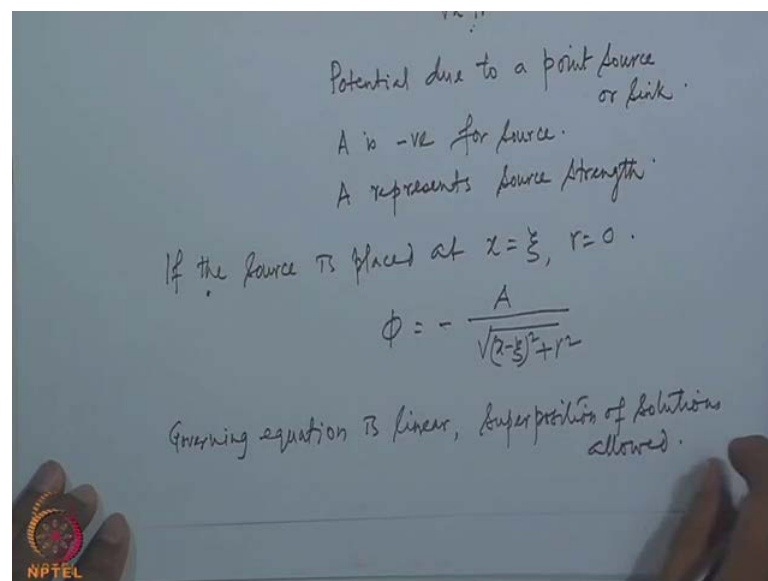 Potential due to a point source
or sink.
A is -ve for source.
A represents source strength.
If the source is placed at x = ξ, r = 0.
ϕ = - A / √((x-ξ)² + r²)
Governing equation is linear, superposition of solutions
allowed.
NPTEL